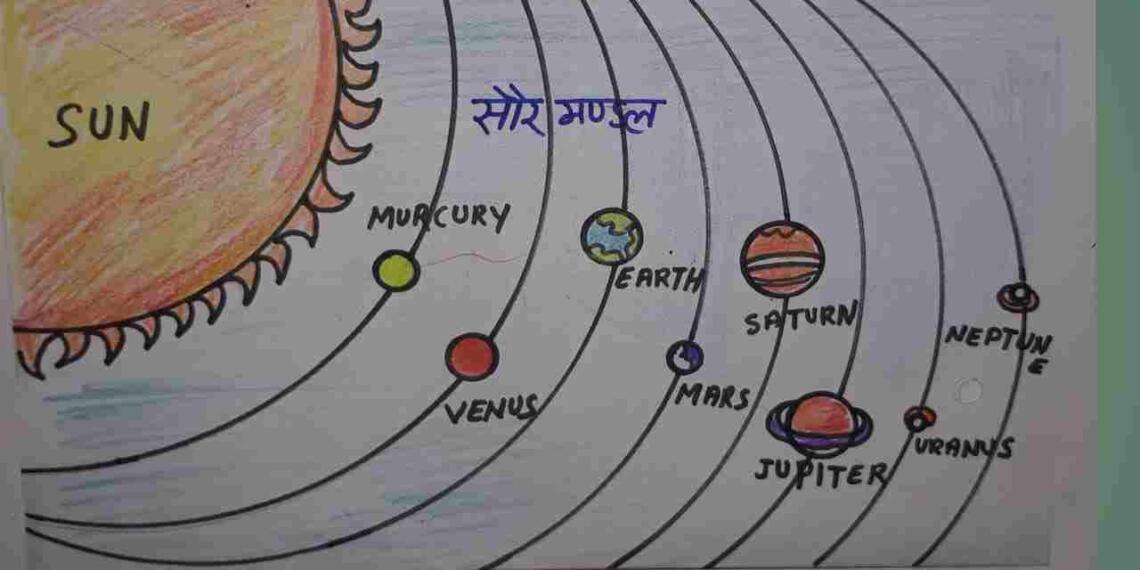 SUN
सौर मण्डल
MURCURY
EARTH
VENUS
MARS
SATURN
JUPITER
URANUS
NEPTUN
E